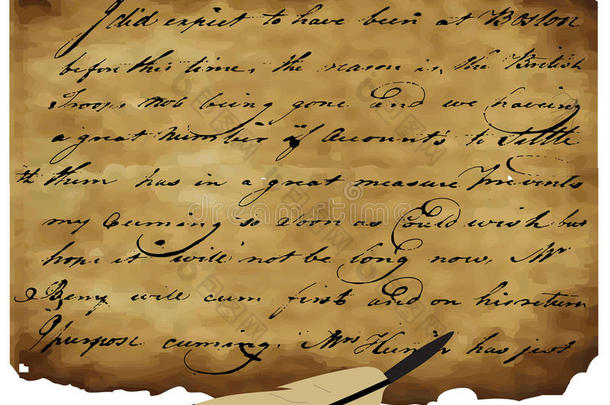 I did expect to have been at Boston
before this time, the reason is, the British
Troops not being gone and we having
a great Number of Accounts to Settle
th them has in a great measure Prevents
my Cuming so soon as Could wish but
hope it will not be long now, Mr
Berry will cum first and on his return
I purpose cuming. Mrs Hunter has just
dreamstime